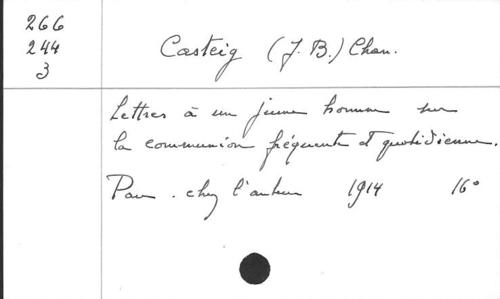 266
244
3
Casteig (J. B.) Chan.
Lettres à un jeune homme sur
la communion fréquente et quotidienne.
Pau . chez l'auteur 1914 16°